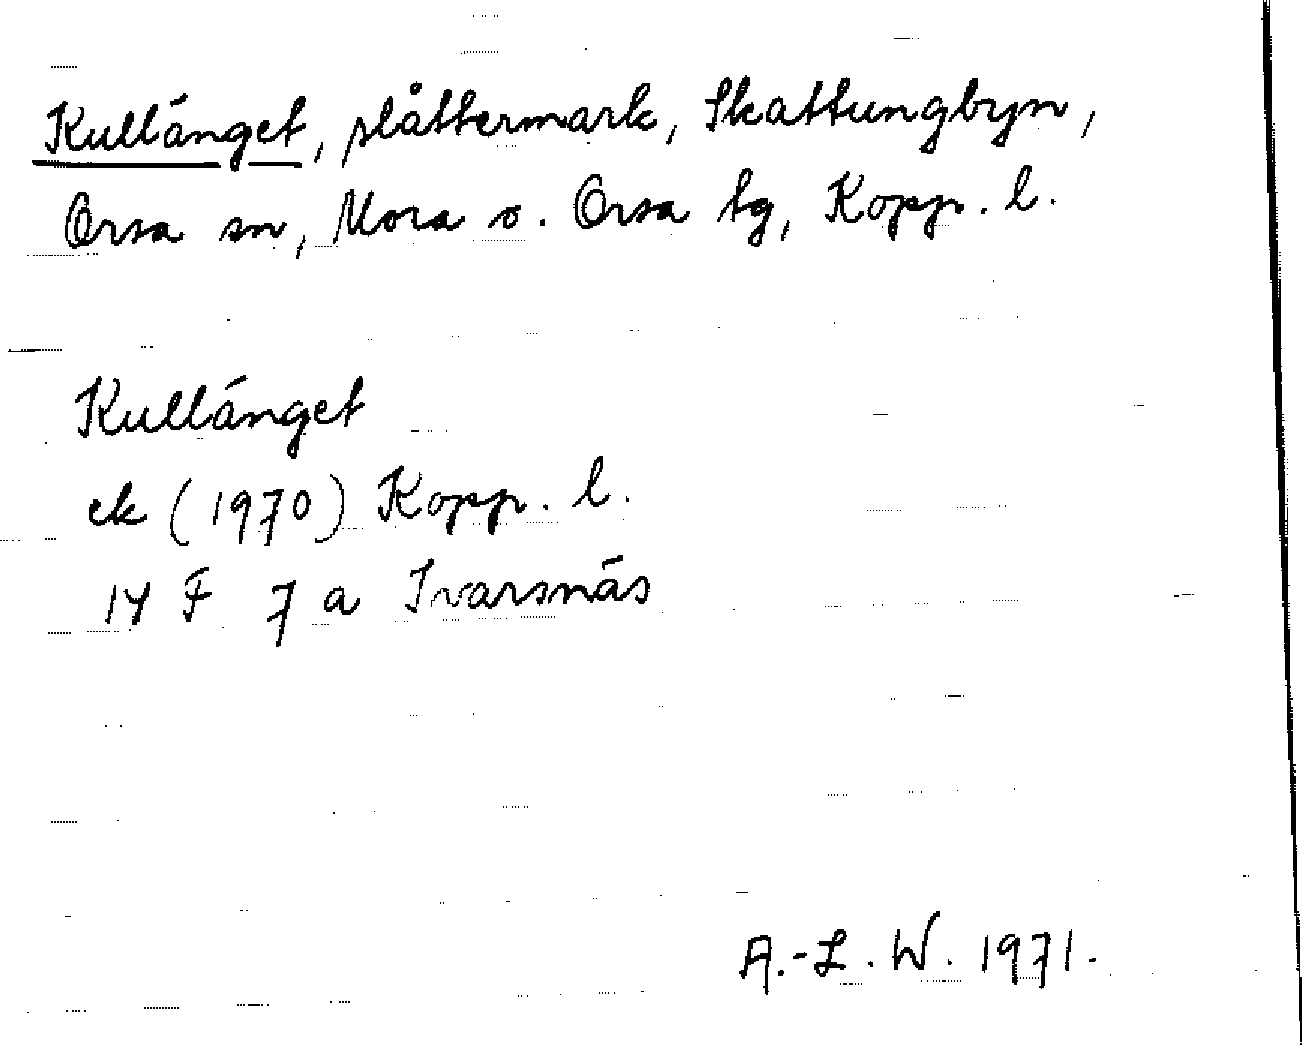 Kullänget, slåttermark, Skattungbyn,
Orsa sn, Mora o. Orsa tg, Kopp. l.
Kullänget
ek (1970) Kopp. l.
14 F 7 a Ivarsnäs
A.-L. W. 1971.